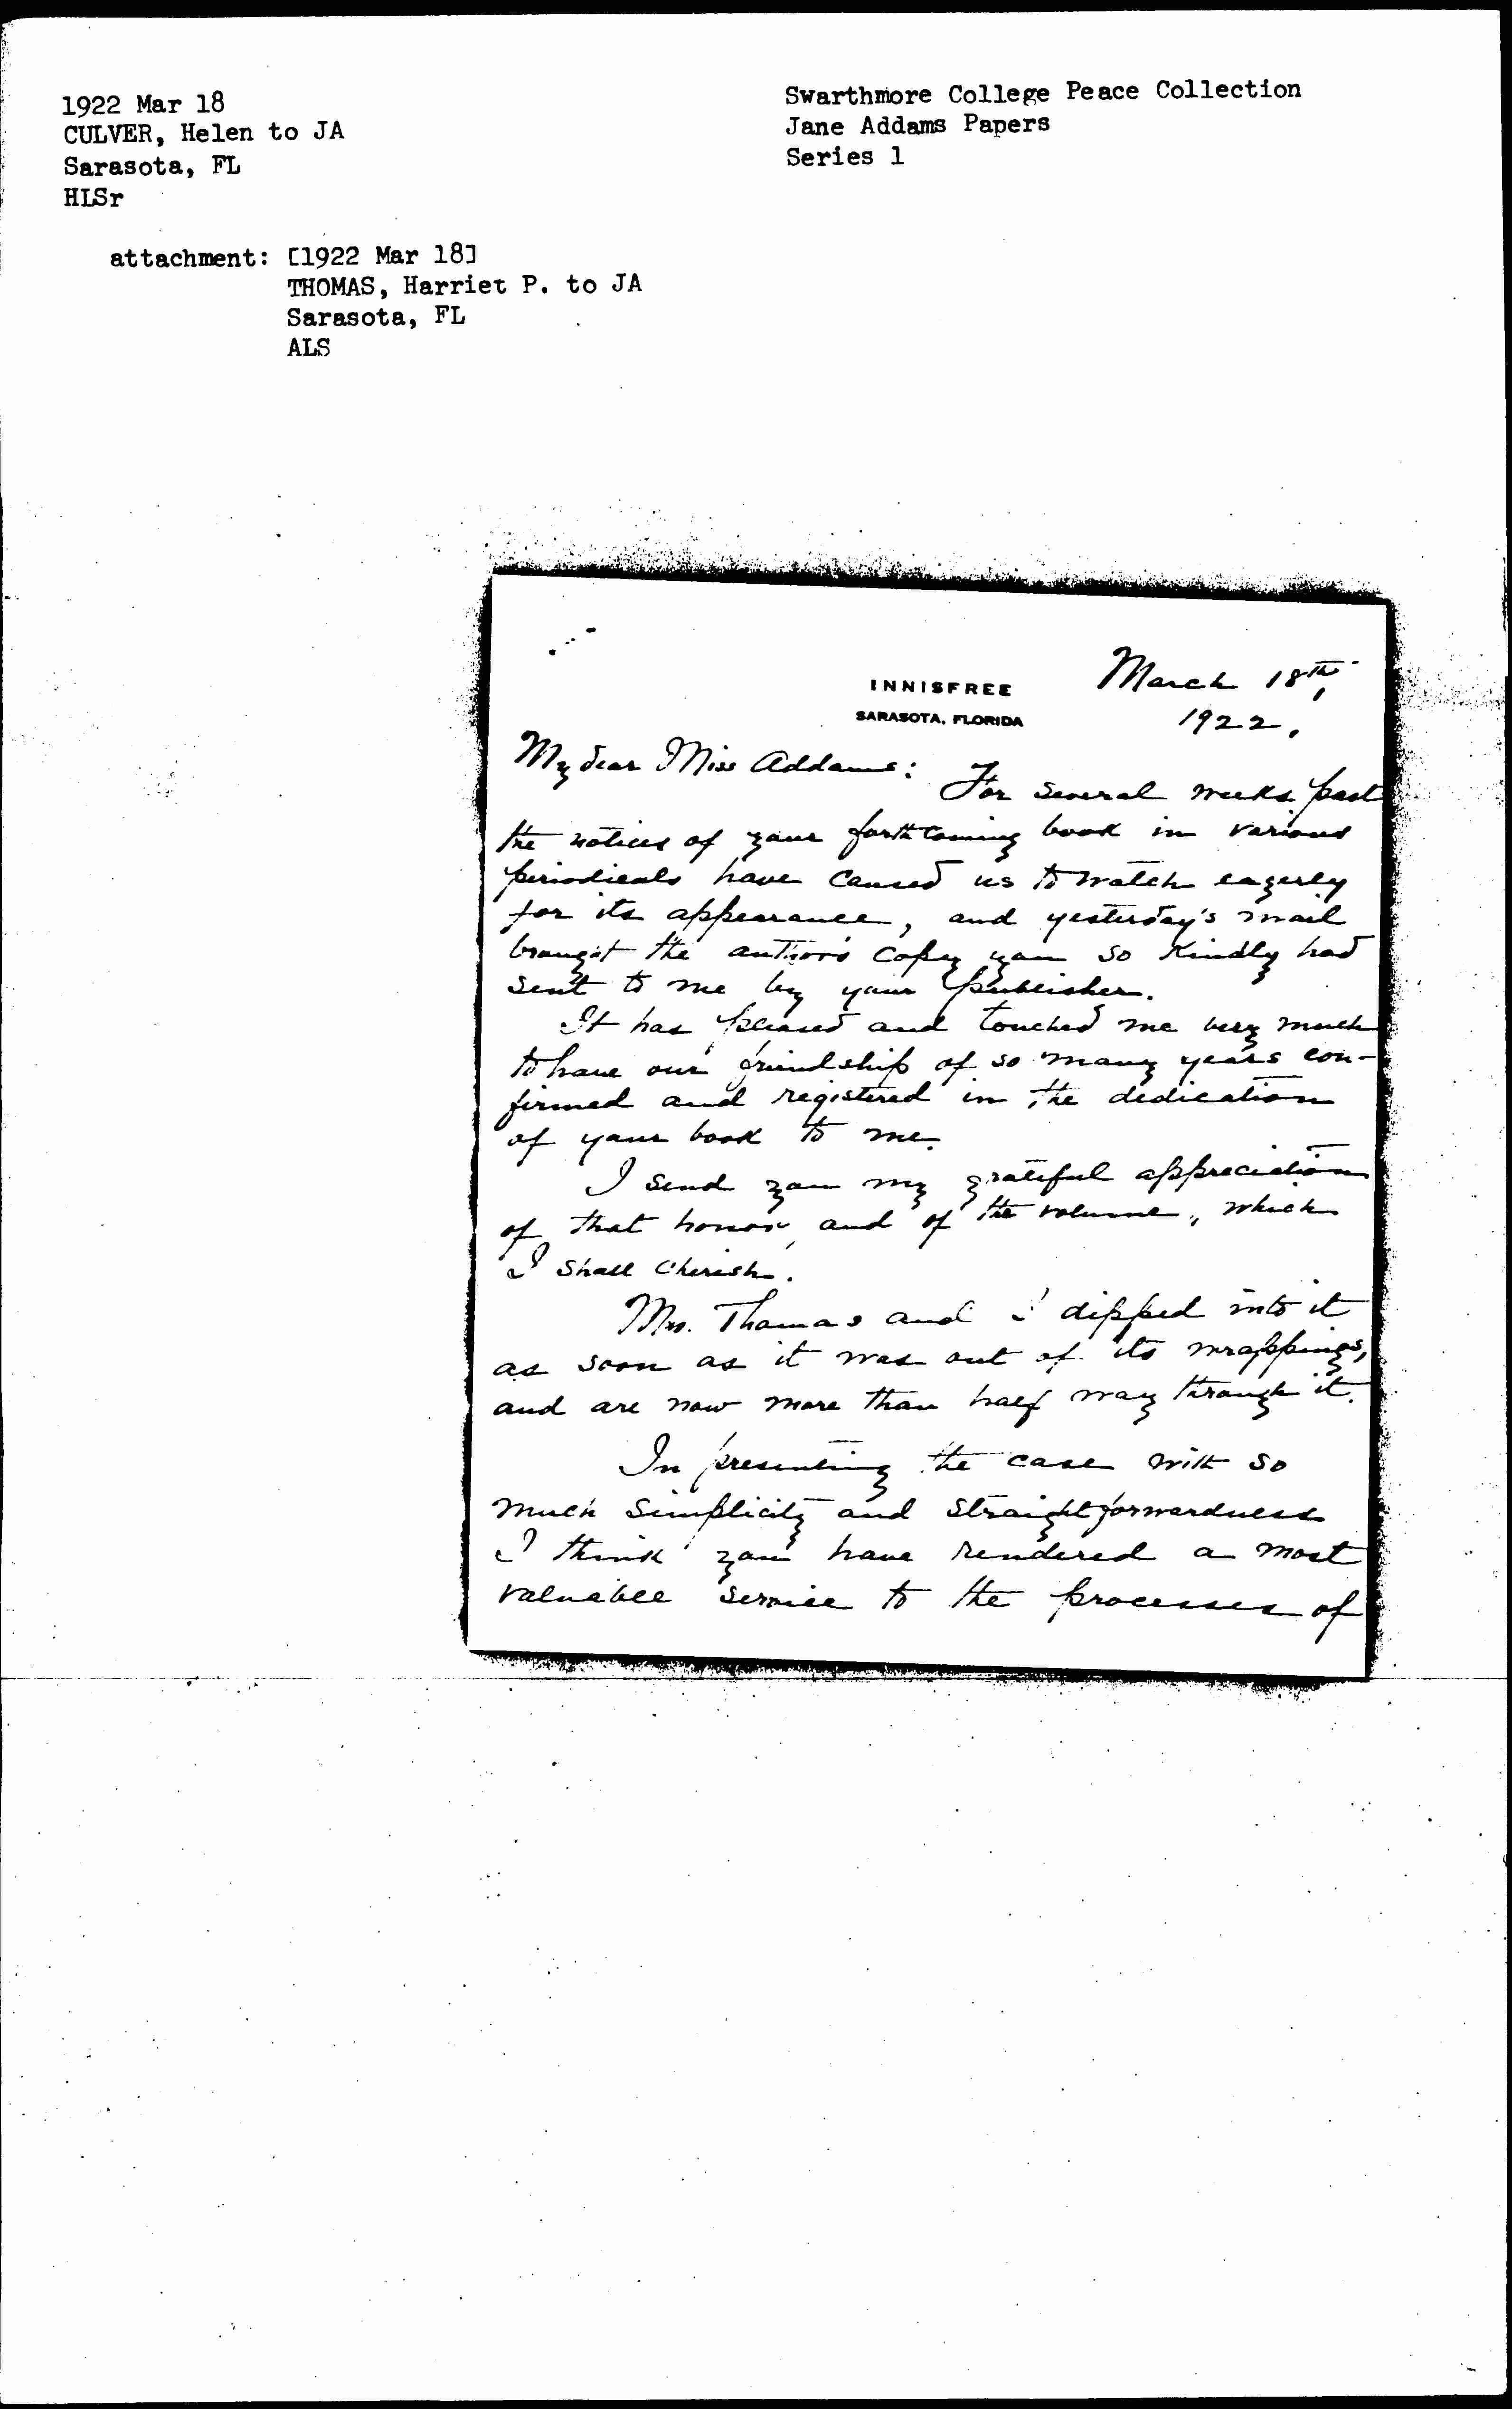 1922 Mar 18
CULVER, Helen to JA
Sarasota, FL
HLSr
attachment: [1922 Mar 18]
THOMAS, Harriet P. to JA
Sarasota, FL
ALS
Swarthmore College Peace Collection
Jane Addams Papers
Series 1
INNISFREE
SARASOTA, FLORIDA
March 18th,
1922.
My dear Miss Addams:
For several weeks past
the notices of your forthcoming book in various
periodicals have caused us to watch eagerly
for its appearance, and yesterday's mail
brought the author's copy you so kindly had
sent to me by your publisher.
It has pleased and touched me very much
to have our friendship of so many years con-
firmed and registered in the dedication
of your book to me.
I send you my grateful appreciation
of that honor, and of the volume, which
I shall cherish.
Mrs. Thomas and I dipped into it
as soon as it was out of its wrappings,
and are now more than half way through it.
In presenting the case with so
much simplicity and straightforwardness
I think you have rendered a most
valuable service to the processes of